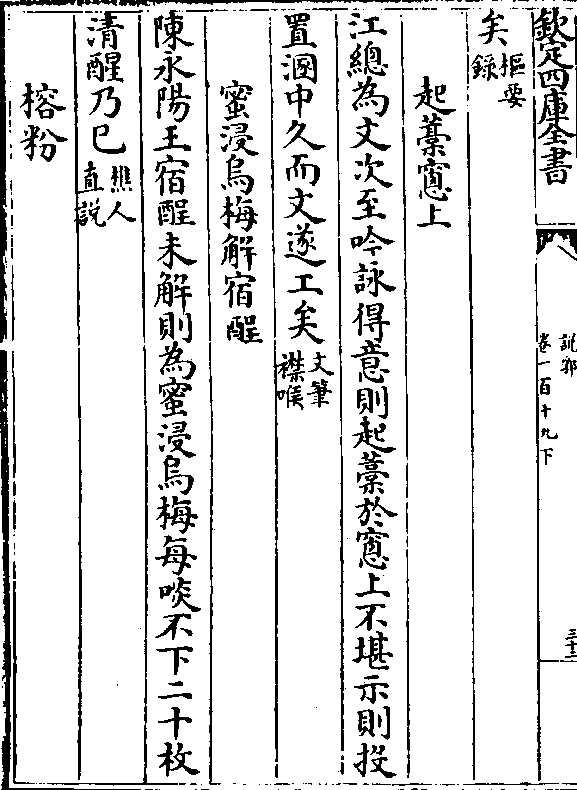 欽定四庫全書
說郛
卷一百十九下
三十二
矣樞要
錄
起藁窻上
江總為文次至吟詠得意則起藁於窻上不堪示則投
置溷中久而文遂工矣文筆
襟喉
蜜浸烏梅解宿酲
陳永陽王宿酲未解則為蜜浸烏梅每啖不下二十枚
清醒乃已樵人
直説
榕粉